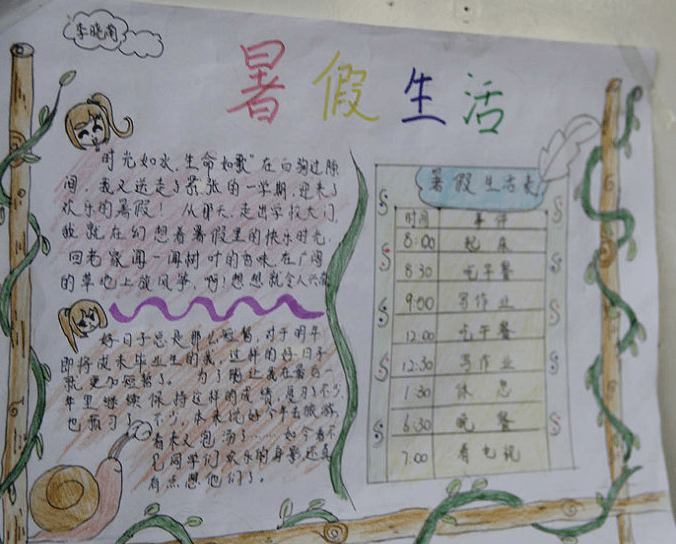 李晓南
暑假生活
时光如水,生命如歌"在白驹过隙
间,我又送走了紧张的一学期,迎来了
欢乐的暑假! 从那天,走出学校大门,
我就在幻想着暑假里的快乐时光,
回老家闻一闻树叶的香味,在广阔
的草地上放风筝,啊!想想就令人兴奋
好日子总是那么短暂,对于明年
即将成来毕业生的我,这样的好日子
就更加短暂了。 为了能让我在最后一
年里继续保持这样的成绩,复习了不少,
也预习了不少,本来说好今年去旅游,
看来又包汤了……如今看不
见同学们欢乐的身影还真
有点想他们了。
暑假生活表
时间 事件
8:00 起床
8:30 吃早餐
9:00 写作业
12:00 吃午餐
12:30 写作业
1:30 休息
6:30 晚餐
7:00 看电视